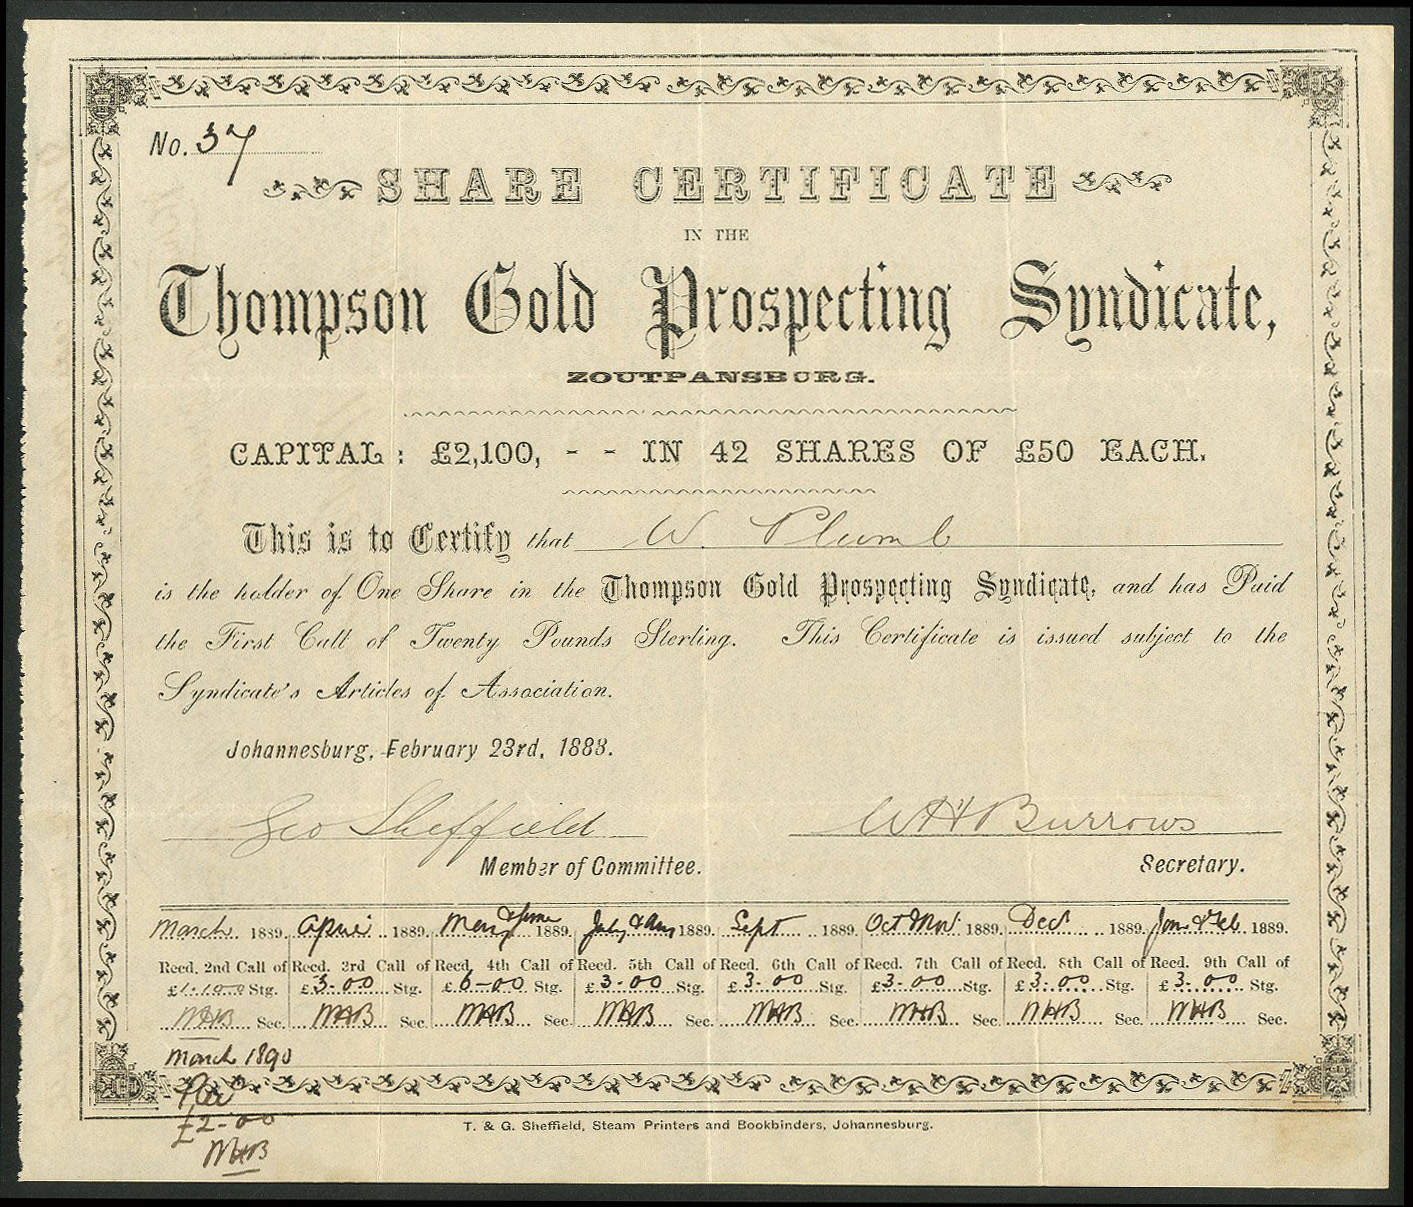 No. 37
SHARE CERTIFICATE
IN THE
Thompson Gold Prospecting Syndicate,
ZOUTPANSBURG.
CAPITAL : £2,100, - - IN 42 SHARES OF £50 EACH.
This is to Certify that W. Plumb
is the holder of One Share in the Thompson Gold Prospecting Syndicate, and has Paid
the First Call of Twenty Pounds Sterling. This Certificate is issued subject to the
Syndicate's Articles of Association.
Johannesburg, February 23rd, 1888.
Geo Sheffield WHBurrows
Member of Committee. Secretary.
March 1889. April 1889. May & June 1889. July & Aug 1889. Sept 1889. Oct & Nov 1889. Dec 1889. Jan & Feb 1889.
Recd. 2nd Call of Recd. 3rd Call of Recd. 4th Call of Recd. 5th Call of Recd. 6th Call of Recd. 7th Call of Recd. 8th Call of Recd. 9th Call of
£1-10-0 Stg. £3-00 Stg. £6-00 Stg. £3-00 Stg. £3-00 Stg. £3-00 Stg. £3-00 Stg. £3-00 Stg.
WHB Sec. WHB Sec. WHB Sec. WHB Sec. WHB Sec. WHB Sec. WHB Sec. WHB Sec.
March 1890
£2-00
WHB
T. & G. Sheffield, Steam Printers and Bookbinders, Johannesburg.